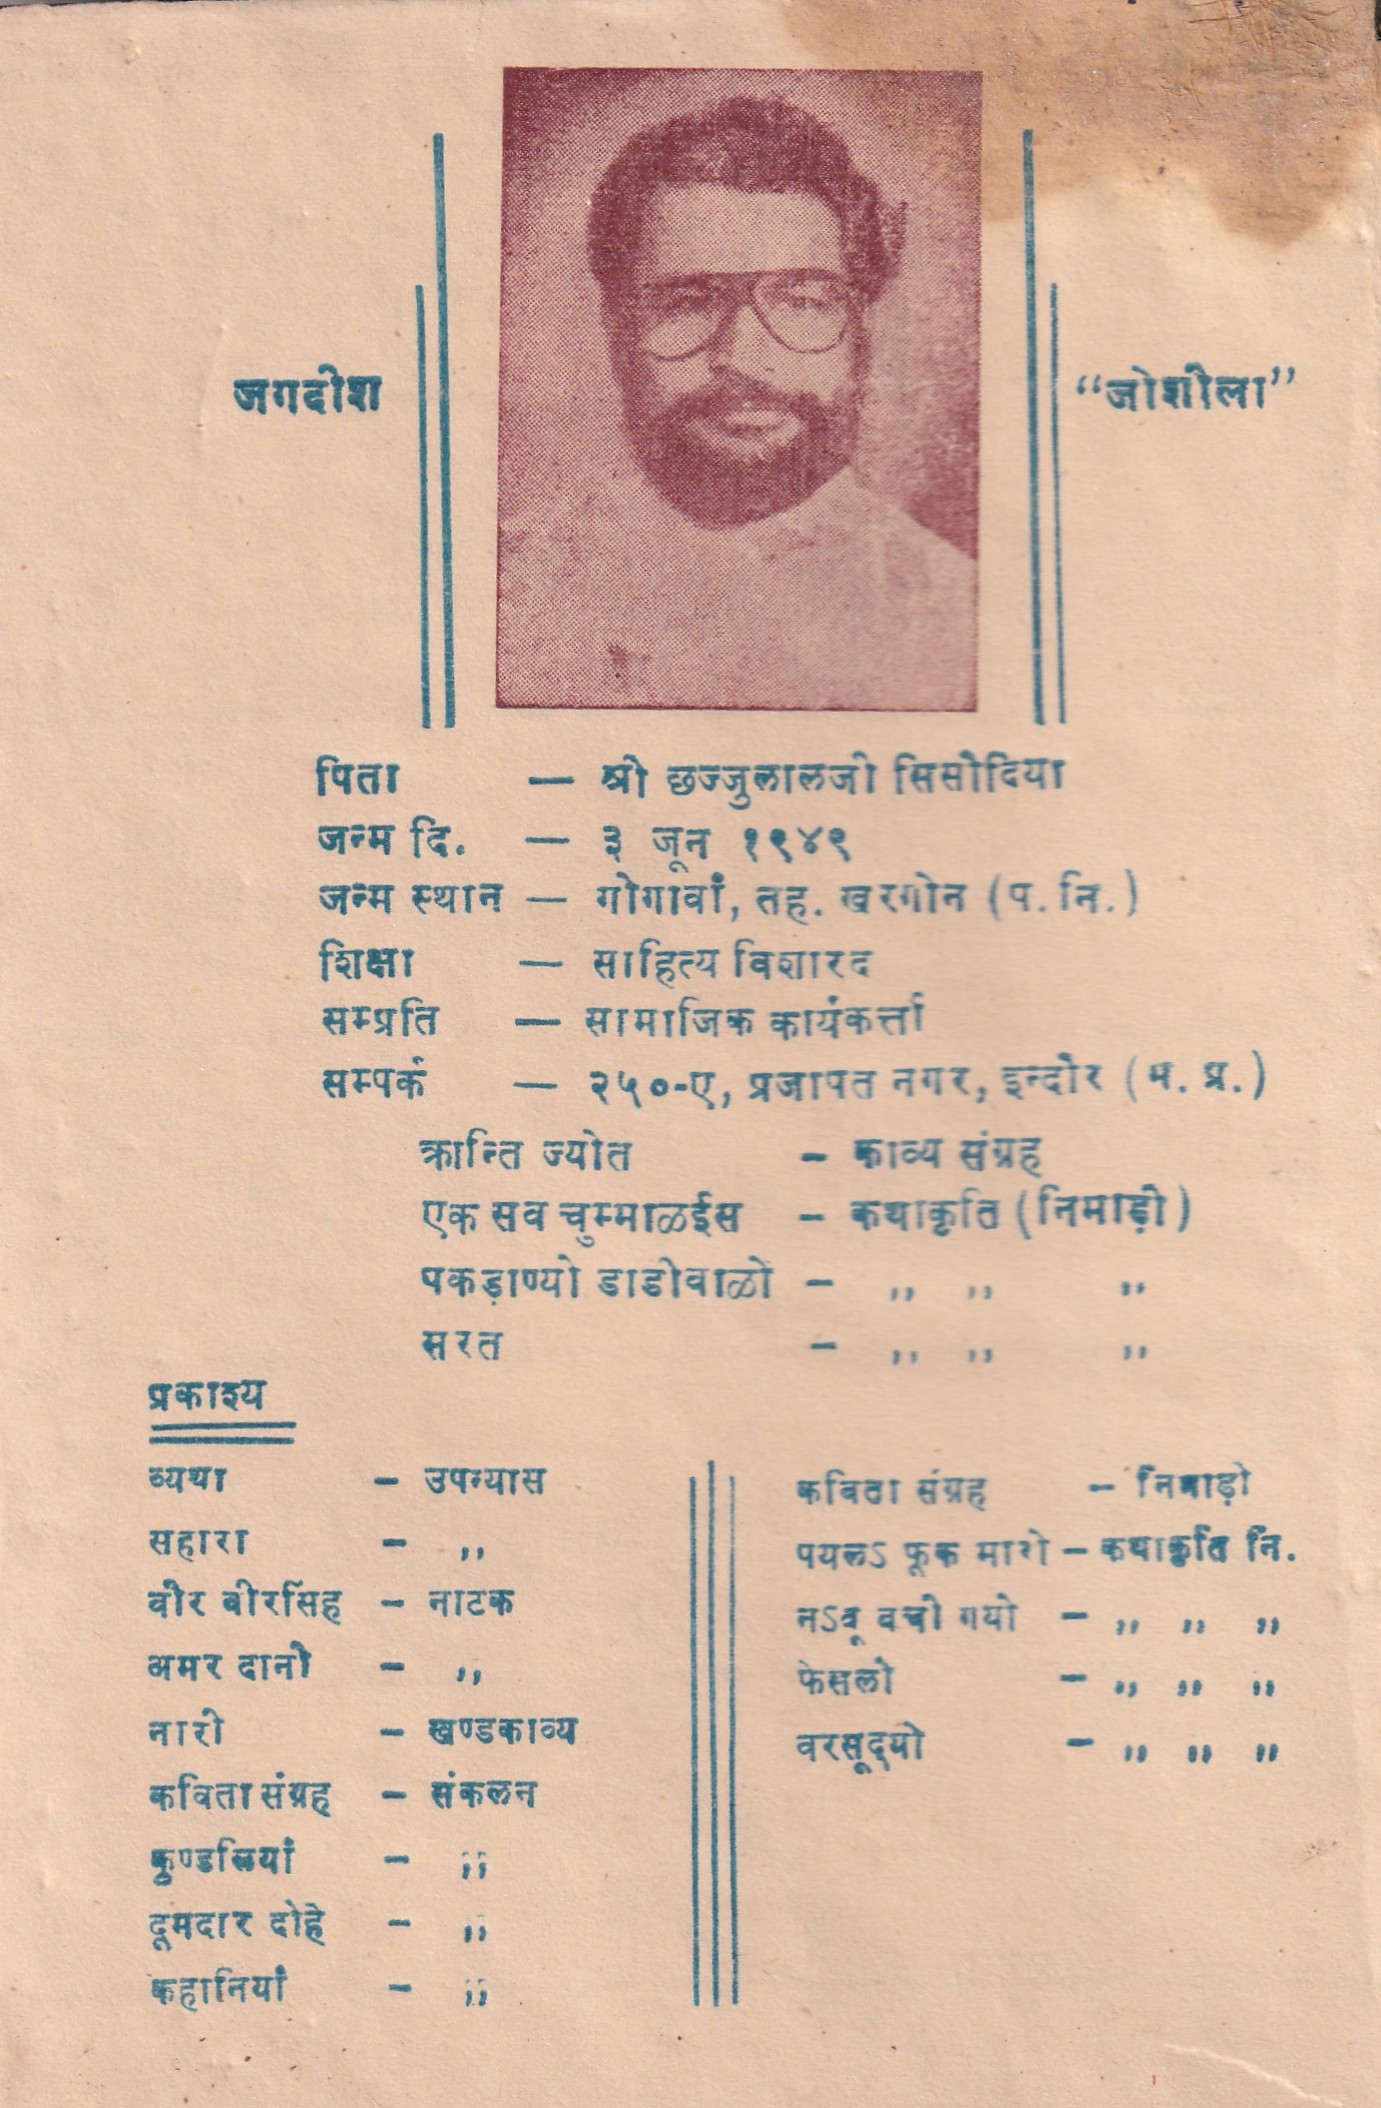 जगदीश
“जोशीला”
पिता — श्री छज्जुलालजी सिसोदिया
जन्म दि. — ३ जून १९४९
जन्म स्थान — गोगावां, तह. खरगोन (प. नि.)
शिक्षा — साहित्य विशारद
सम्प्रति — सामाजिक कार्यकर्त्ता
सम्पर्क — २५०-ए, प्रजापत नगर, इन्दोर (म. प्र.)
क्रान्ति ज्योत - काव्य संग्रह
एक सव चुम्माळईस - कथाकृति (निमाड़ी)
पकड़ाण्यो डाडीवाळो - ,, ,, ,,
सरत - ,, ,, ,,
प्रकाश्य
व्यथा - उपन्यास
सहारा - ,,
वीर बीरसिंह - नाटक
अमर दानी - ,,
नारी - खण्डकाव्य
कविता संग्रह - संकलन
कुण्डलियां - ,,
दूमदार दोहे - ,,
कहानियां - ,,
कविता संग्रह - निमाड़ी
पयलऽ फूक मारो - कथाकृति नि.
नऽवू बची गयो - ,, ,, ,,
फेसलो - ,, ,, ,,
वरसूद्यो - ,, ,, ,,